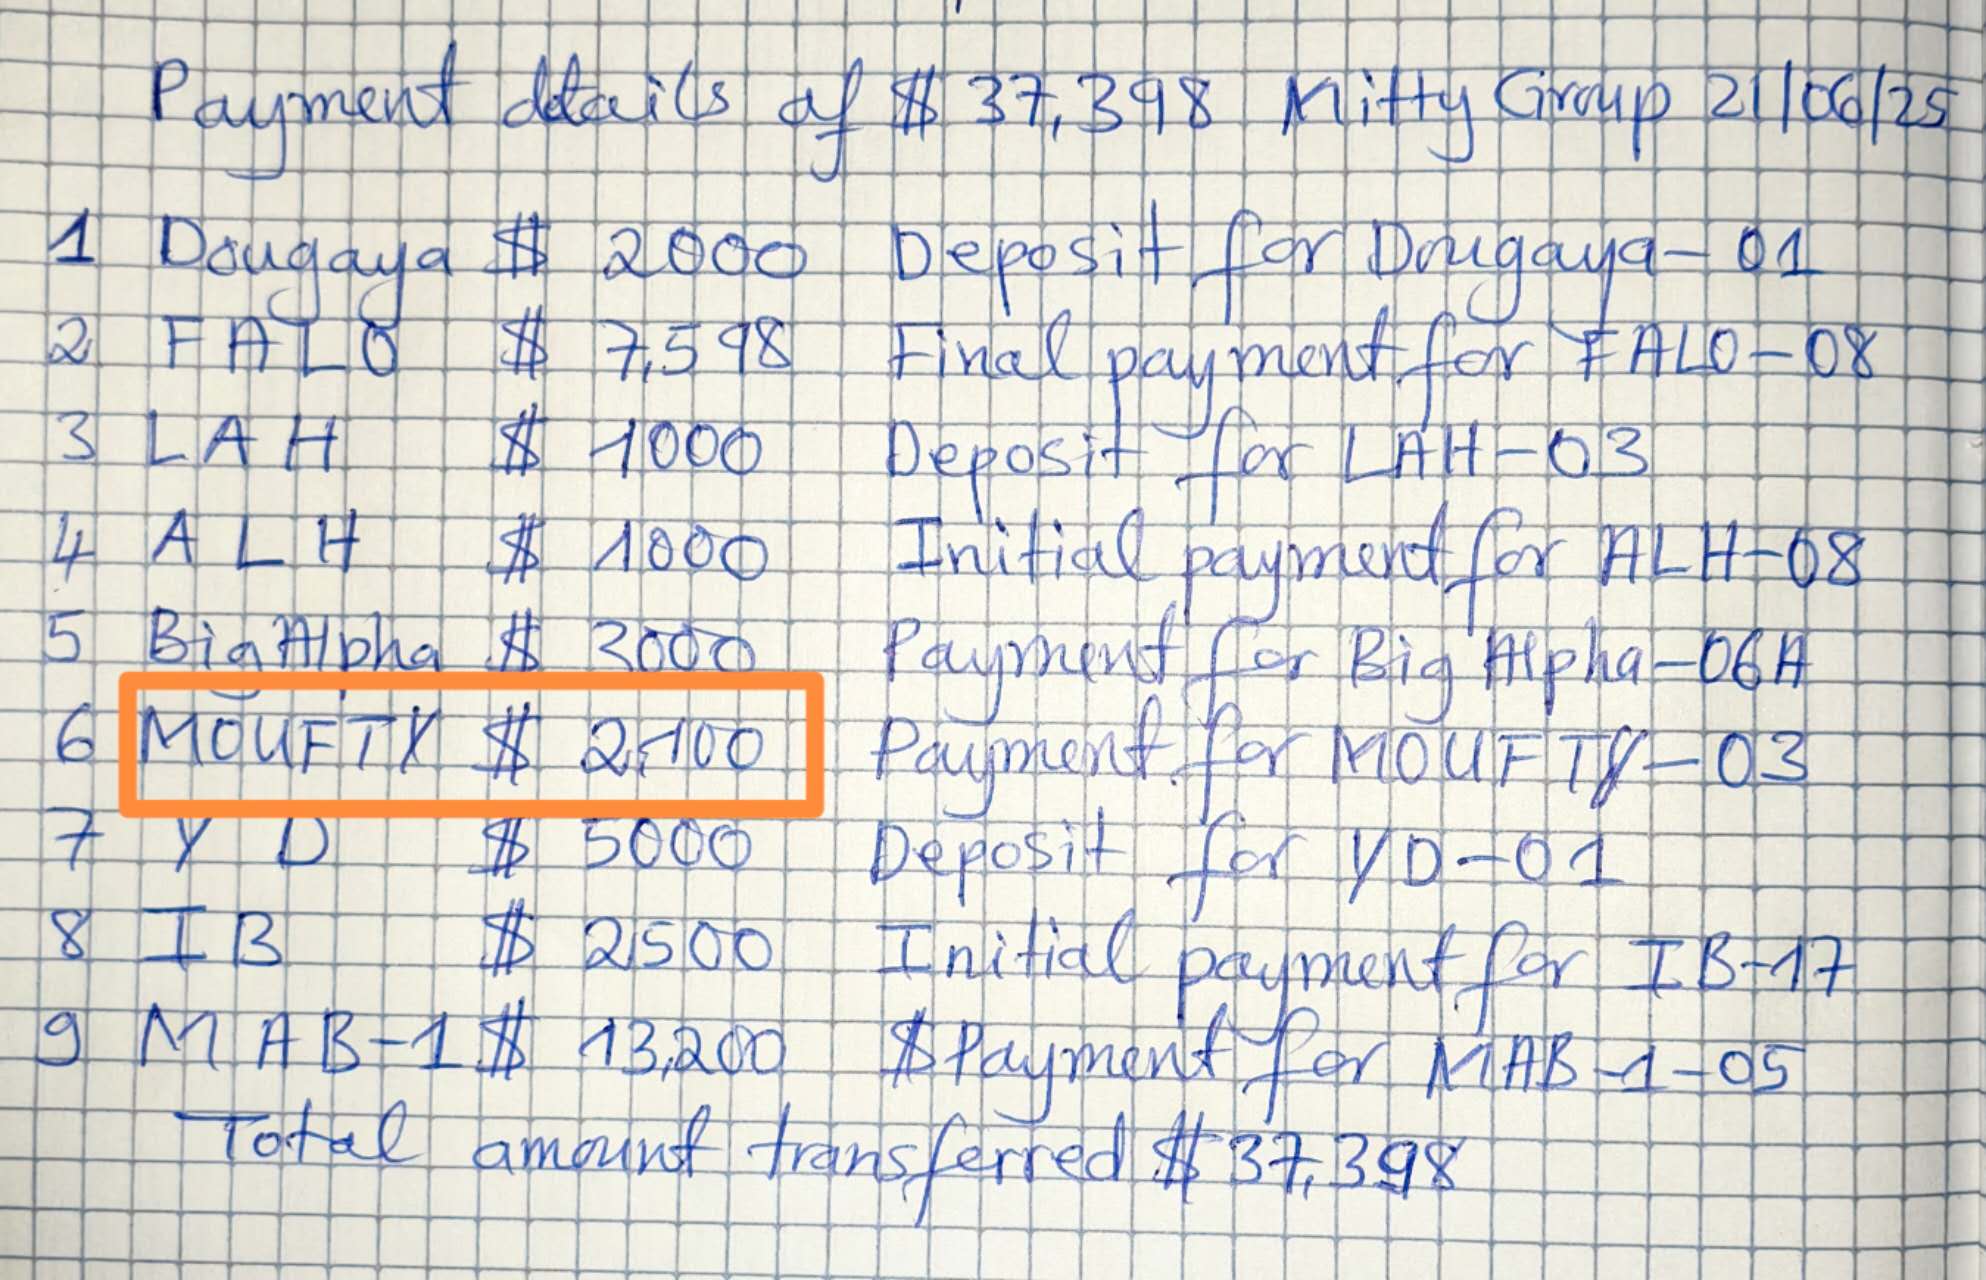 Payment details of $ 37,398 Mitty Group 21/06/25
1 Dougaya $ 2000 Deposit for Dougaya-01
2 FALO $ 7,598 Final payment for FALO-08
3 LAH $ 1000 Deposit for LAH-03
4 ALH $ 1000 Initial payment for ALH-08
5 Big Alpha $ 3000 Payment for Big Alpha-06A
6 MOUFTY $ 2,100 Payment for MOUFTY-03
7 YD $ 5000 Deposit for YD-01
8 IB $ 2,500 Initial payment for IB-17
9 MAB-1 $ 13,200 $ Payment for MAB-1-05
Total amount transferred $ 37,398